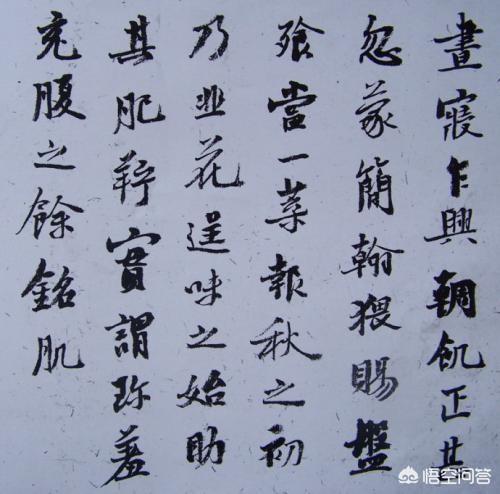 晝寢乍興輖飢正甚
忽蒙簡翰猥賜盤
飧當一葉報秋之初
乃韭花逞味之始助
其肥羜實謂珍羞
充腹之餘銘肌
悟空问答